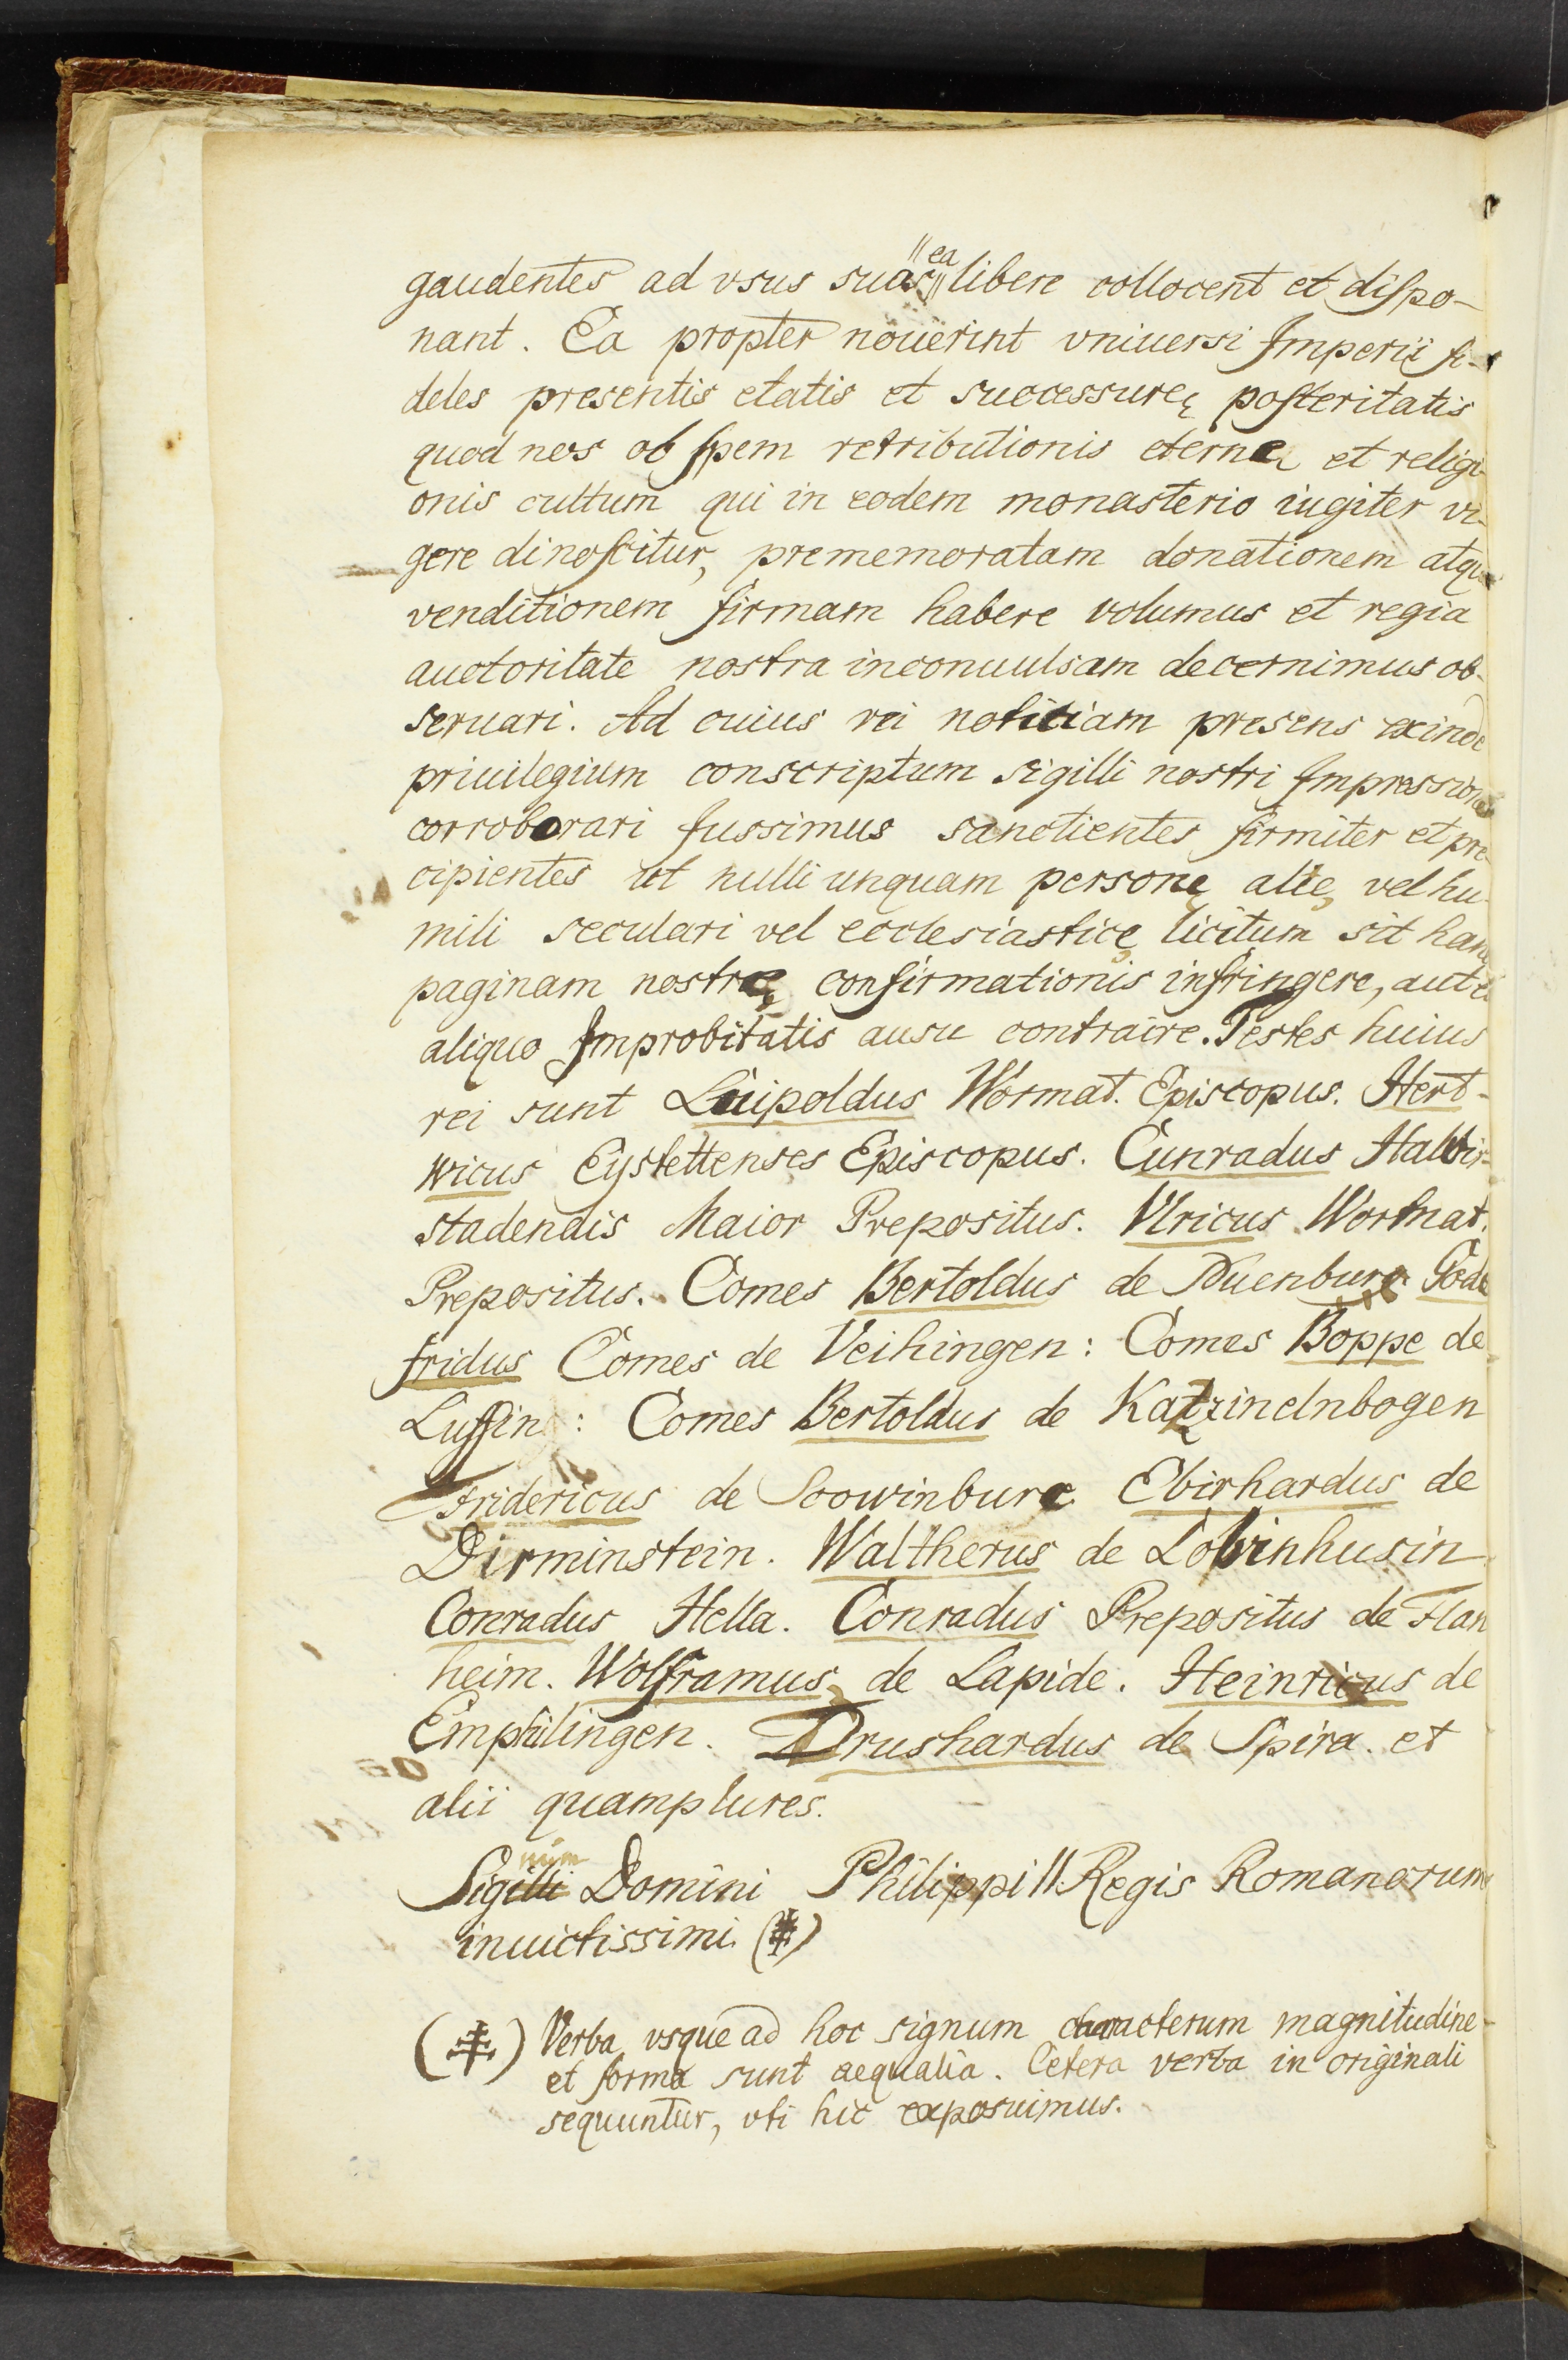 gaudentes ad vsus suas ea libere collocent et dispo-
nant. Ea propter nouerint vniuersi Imperii fi-
deles presentis etatis et successurę posteritatis
quod nos ob spem retributionis eternę et religi-
onis cultum qui in eodem monasterio iugiter vi-
gere dinoscitur, prememoratam donationem atque
venditionem firmam habere volumus et regia
auctoritate nostra inconuulsam decernimus ob-
seruari. Ad cuius rei notitiam presens exinde
priuilegium conscriptum sigilli nostri Impressione
corroborari Jussimus sanctientes firmiter et pre-
cipientes ut nulli unquam personę altę vel hu-
mili seculari vel ecclesiasticę licitum sit hanc
paginam nostrę confirmationis infringere, aut ei
aliquo Improbitatis ausu contraire. Testes huius
rei sunt Luipoldus Wormat. Episcopus. Hert-
wicus Eystettenses Episcopus. Cunradus Halbir-
stadensis Maior Prepositus. Vlricus Wormat.
Prepositus. Comes Bertoldus de Nuenburc Gode
fridus Comes de Veihingen: Comes Boppe de
Luffin: Comes Bertoldus de Katzinelnbogen
Fridericus de Scowinburc Ebirhardus de
Dirminstein. Waltherus de Lobinhusin
Conradus Hella. Conradus Prepositus de Flan
heim. Wolframus de Lapide. Heinricus de
Emphilingen. Drushardus de Spira. et
alii quamplures.
num
Sigilli Domini Philippi II Regis Romanorum
inuictissimi (⹋)
(⹋) Verba vsque ad hoc signum characterum magnitudine
et forma sunt aequalia. Cetera verba in originali
sequuntur, vti hic exposuimus.